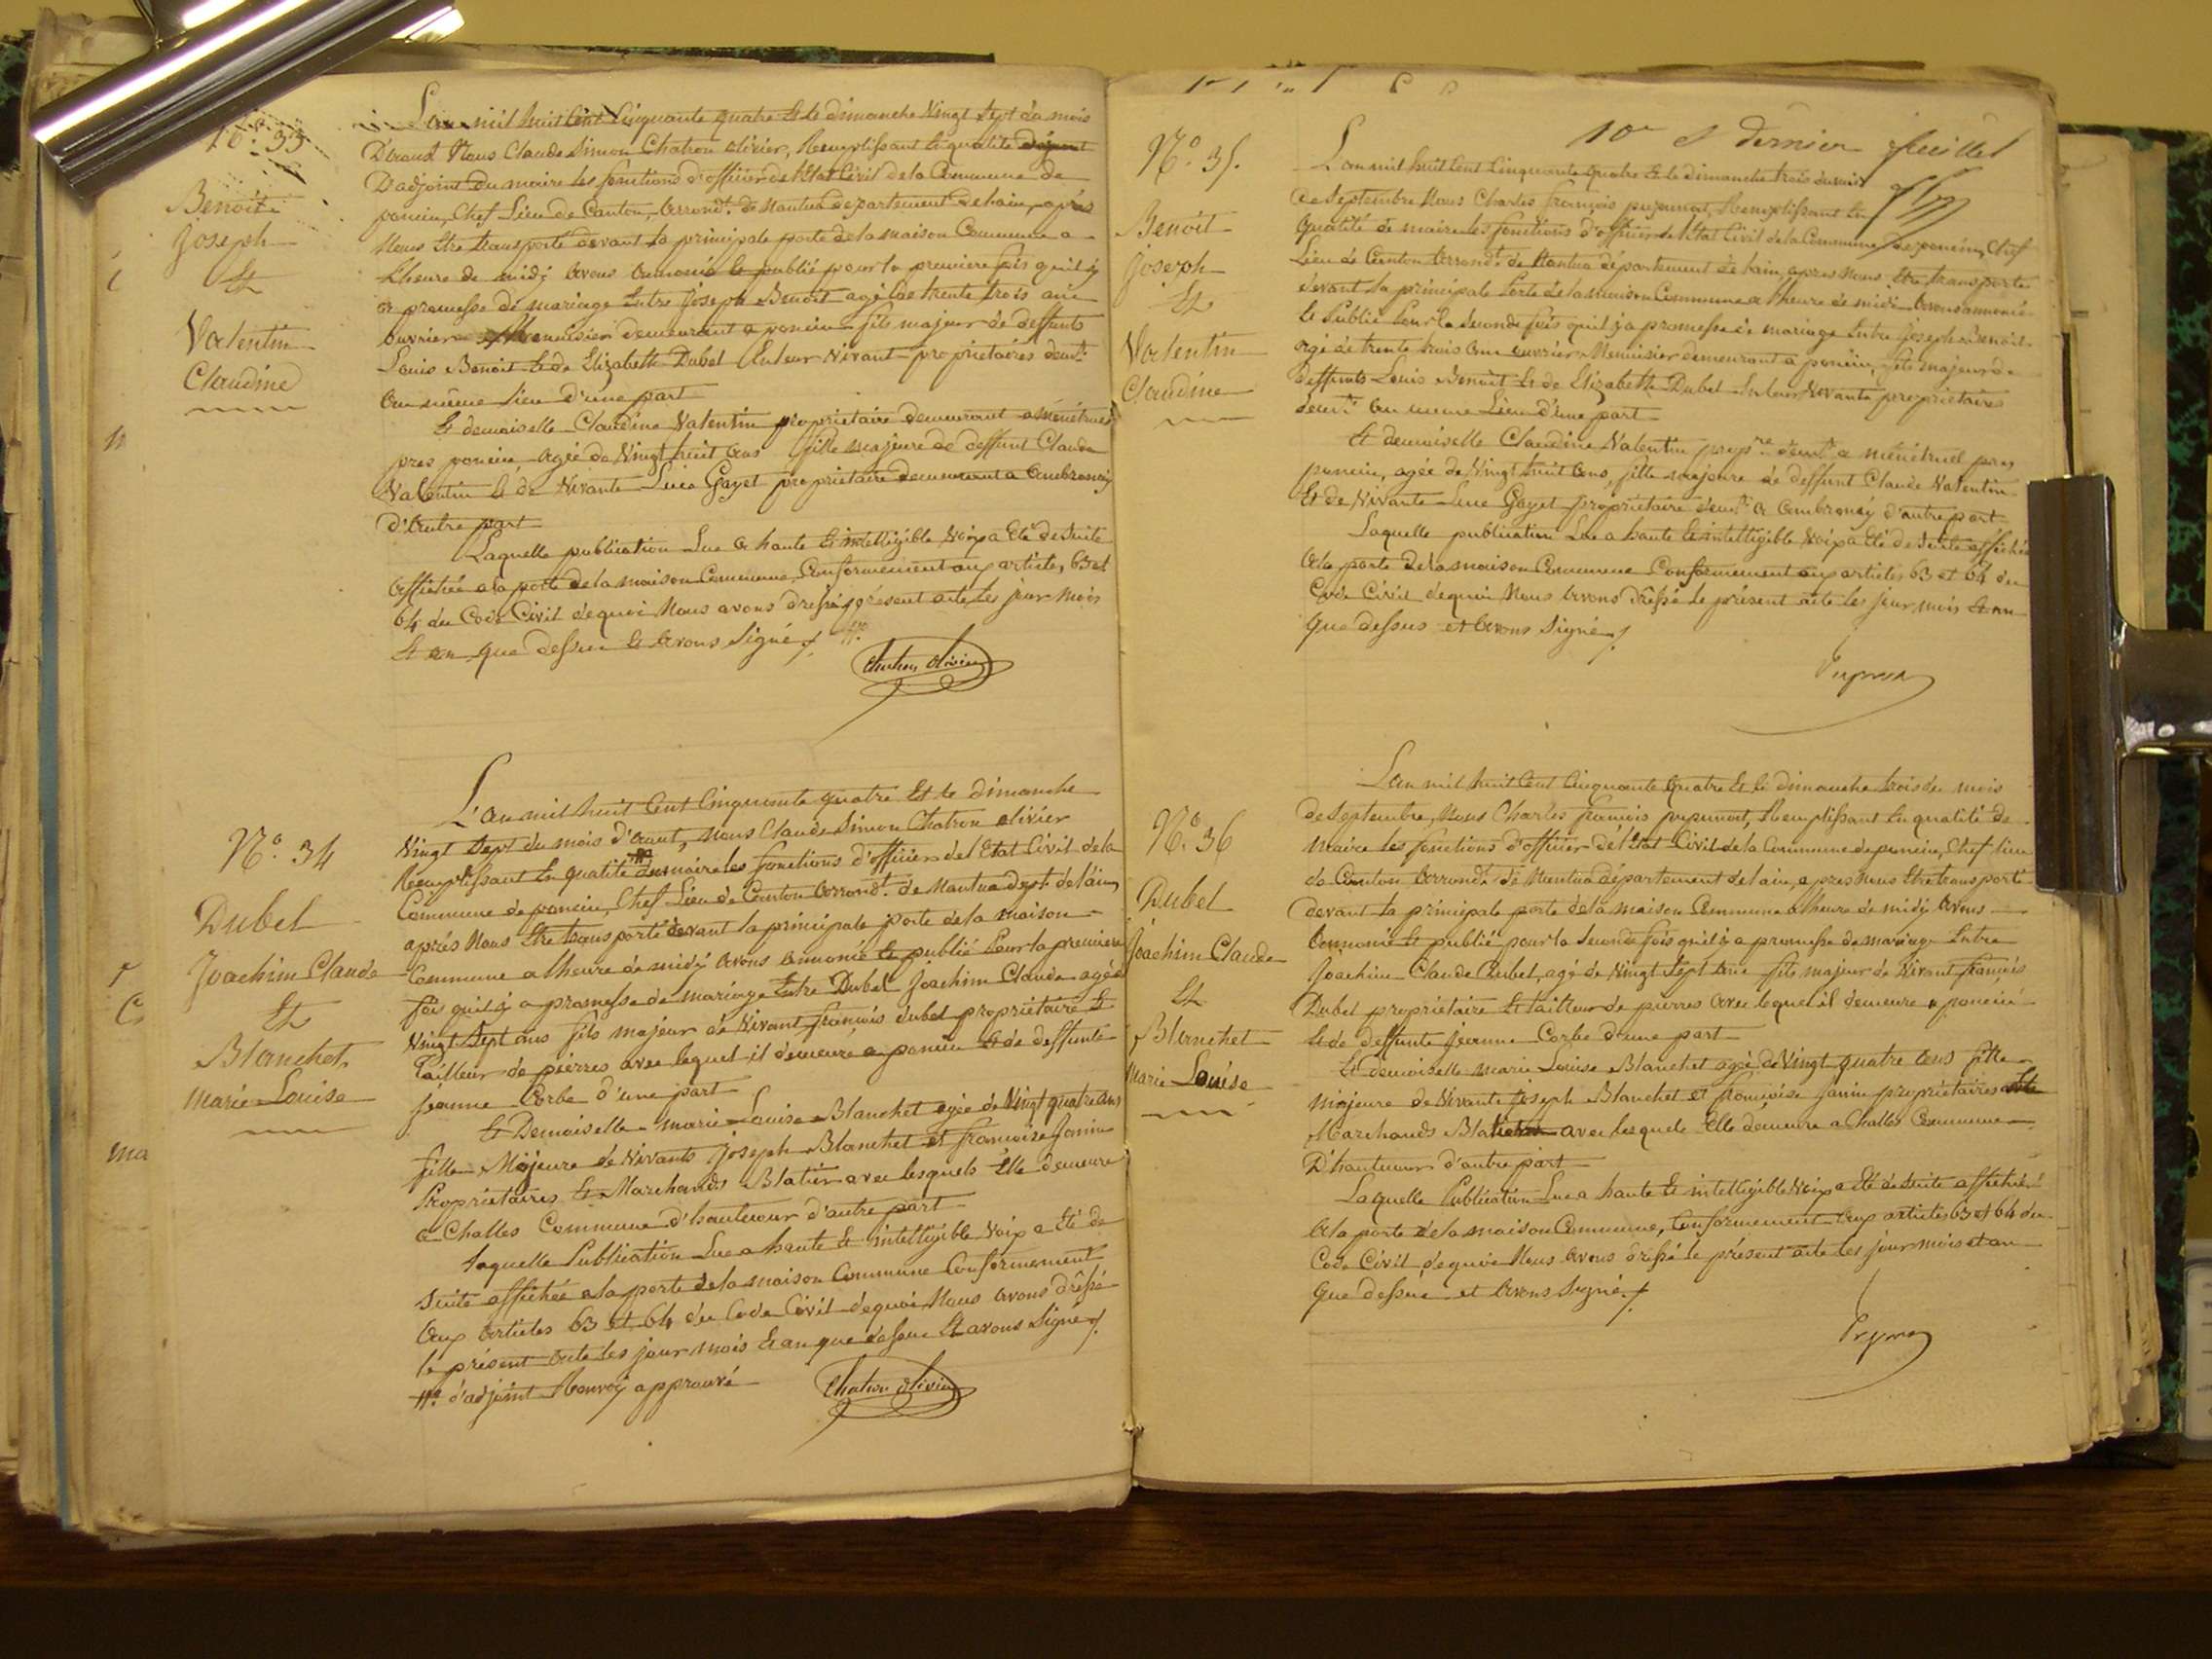 N°. 33
Benoit
Joseph
Et
Valentin
Claudine
L'an mil huit Cent Cinquante quatre Et le dimanche Vingt Sept du mois
D'Aoust Nous Claude Simon Chatron Olivier, Remplissant En qualité
D'adjoint du maire les fonctions d'officier de l'Etat Civil de la Commune de
poncin, Chef Lieu de Canton, Arrondt. de Nantua departement de l'ain, aprés
Nous Etre transporté devant la principale porte de la maison Commune a
L'heure de midi Avons Annoncé Et publié pour la premiere fois qu'il y
a promesse de mariage Entre Joseph Benoit agé de trente trois ans
ouvrier Menuisier demeurant a poncin fils majeur de deffunts
Louis Benoit Et de Elizabeth Dubel Enleur Vivant propriétaires demt.
Au même Lieu d'une part
Et demoiselle Claudine Valentin propriétaire demeurant a ménétruel
pres poncin Agée de Vingt huit Ans fille majeure de deffunt Claude
Valentin Et de Vivante Luce Gayet propriétaire demeurant a Ambronay
D'Autre part
Laquelle publication Lue a haute Et intelligible Voix a Eté de Suite
Affichée a la porte de la maison Commune, Conformement aux articles 63 et
64 du Code Civil dequoi Nous avons dressé le présent acte Les jour mois
Et an que dessus Et Avons Signé
Chatron Olivier
N°. 34
Dubel
Joachim Claude
Et
Blanchet
Marie Louise
L'an mil huit Cent Cinquante quatre Et le dimanche
Vingt Sept du mois d'Aout, nous Claude Simon Chatron Olivier
Remplissant En qualité du maire les fonctions d'officier de l'Etat Civil de la
Commune de poncin, Chef Lieu de Canton Arrondt. de Nantua dept. de l'ain
aprés Nous Etre transporté devant la principale porte de la maison
Commune a lheure de midi Avons annoncé Et publié Pour la premiere
fois qu'il y a promesse de mariage Entre Dubel Joachim Claude agé de
Vingt Sept ans fils majeur de Vivant françois dubel propriétaire Et
Tailleur de pierres avec lequel il demeure a poncin Et de deffunte
jeanne Corbe d'une part
Et Demoiselle marie Louise Blanchet agée de Vingt quatre ans
fille Majeure de Vivants Joseph Blanchet et françoise Janin
Propriétaires Et Marchands Blatier avec lesquels Elle demeure
a Challes Commune d'hautecour d'autre part
Laquelle Publication Lue a haute Et intelligible Voix a Eté de
Suite affichée a la porte de la maison Commune Conformement
Aux Articles 63 Et 64 du Code Civil dequoi Nous Avons dréssé
le présent acte Les jour mois Et an que dessus Et avons Signé
d'adjoint Renvoi approuvé
Chatron Olivier
10e et dernier feuillet
N°. 35.
Benoit
Joseph
Et
Valentin
Claudine
L'an mil huit Cent Cinquante quatre Et le dimanche trois du mois
de Septembre Nous Charles françois Remplissant En
qualité de maire les fonctions d'officier de l'Etat Civil de la Commune de poncin, Chef
Lieu de Canton Arrondt. de Nantua département de lain, apres Nous Etre transporté
devant la principale Porte de la maison Commune a lheure de midi Avons annoncé
Et Publié Pour la Seconde fois qu'il y a promesse de mariage Entre Joseph Benoit
agé de trente trois Ans ouvrier Menuisier demeurant a poncin, fils majeur de
deffunts Louis Benoit Et de Elizabeth Dubel Enleur Vivants propriétaires
demt. Au meme Lieu d'une part
Et demoiselle Claudine Valentin propre. demt. a ménétruel pres
poncin, agée de Vingt huit Ans, fille majeure de deffunt Claude Valentin
Et de Vivante Luce Gayet propriétaire demt. a Ambronay d'autre part
Laquelle publication Lue a haute Et intelligible Voix a Eté de Suite affichée
A la porte de la maison Commune Conformement aux articles 63 et 64 du
Code Civil dequoi Nous Avons dréssé le présent acte les jour mois Et an
que dessus et Avons Signé
N°. 36
Dubel
Joachim Claude
Et
Blanchet
Marie Louise
L'an mil huit Cent Cinquante quatre Et le dimanche trois du mois
de Septembre, Nous Charles françois Remplissant En qualité de
Maire les fonctions d'officier de l'Etat Civil de la Commune de poncin, Chef lieu
de Canton Arrondt. de Nantua département de lain, apres nous Etre transporté
devant la principale porte de la maison Commune a lheure de midi Avons
Annoncé Et publié pour la Seconde fois qu'il y a promesse de mariage Entre
Joachim Claude Dubel, agé de Vingt Sept Ans fils majeur de Vivant françois
Dubel propriétaire Et tailleur de pierres Avec lequel il demeure a poncin
Et de deffunte Jeanne Corbe d'une part
Et demoiselle marie Louise Blanchet agée de Vingt quatre Ans fille
majeure de Vivants Joseph Blanchet et françoise Janin propriétaires
Marchands Blatier avec lesquels Elle demeure a Challes Commune
D'hautecour d'autre part
Laquelle Publication Lue a haute Et intelligible Voix a Eté de Suite affichée
A la porte de la maison Commune, Conformement Aux articles 63 et 64 du
Code Civil dequoi Nous Avons dréssé le présent acte Les jour mois et an
que dessus et Avons Signé